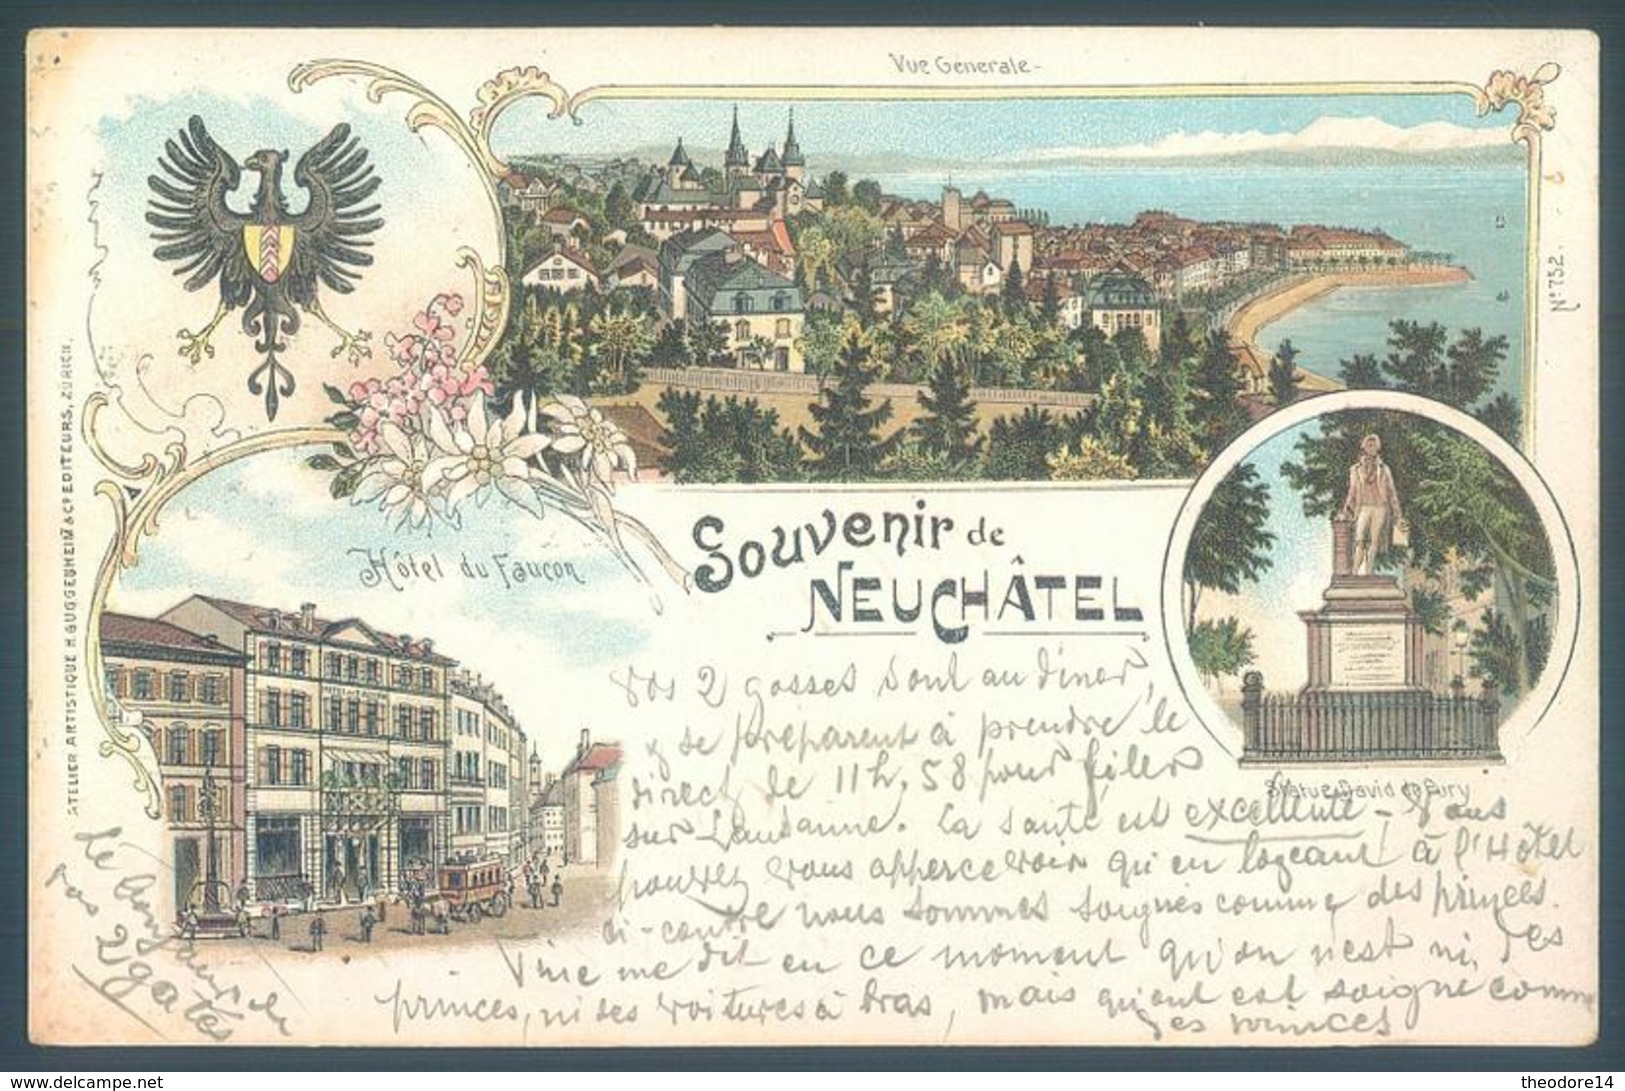 Vue Générale-
N° 752.
ATELIER ARTISTIQUE H. GUGGENHEIM & Cie EDITEURS, ZÜRICH.
Hôtel du Faucon
Souvenir de
NEUCHÂTEL
Statue David de Pury
Vos 2 gosses sont au diner,
& se préparent à prendre le
direct de 11h,58 pour filer
sur Lausanne. La santé est excellente - Vous
pouvez vous appercevoir qu'en logeant à l'Hôtel
ci-contre nous sommes soignés comme des princes.
me dit en ce moment qu'on n'est ni des
princes, ni des voitures à bras, mais qu'on est soigné comme
des princes
Le bonjour de
vos 2 gatés
theodore14